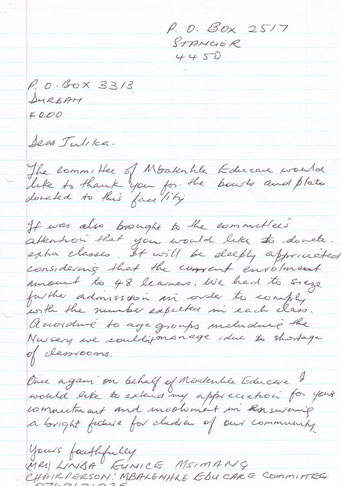 P. O. BOX 2517
STANGER
4450
P. O. BOX 3313
DURBAN
4000
Dear Julika.
The committee of Mbalenhle Educare would
like to thank you for the bowls and plates
donated to this facility
It was also brought to the committee's
attention that you would like to donate
extra classes It will be deeply appriciated
considering that the current enrolment
amount to 48 learners. We had to
further admission in order to comply
with the number expected in each class.
According to age groups including the
Nursery we couldn't manage due to shortage
of classrooms.
Once again on behalf of Mbalenhle Educare I
would like to extend my appreciation for your
commitment and involvment in ensuring
a bright future for children of our community.
Yours faithfully
MRS LINDA EUNICE MSIMANG
CHAIRPERSON: MBALENHLE EDUCARE COMMITTEE